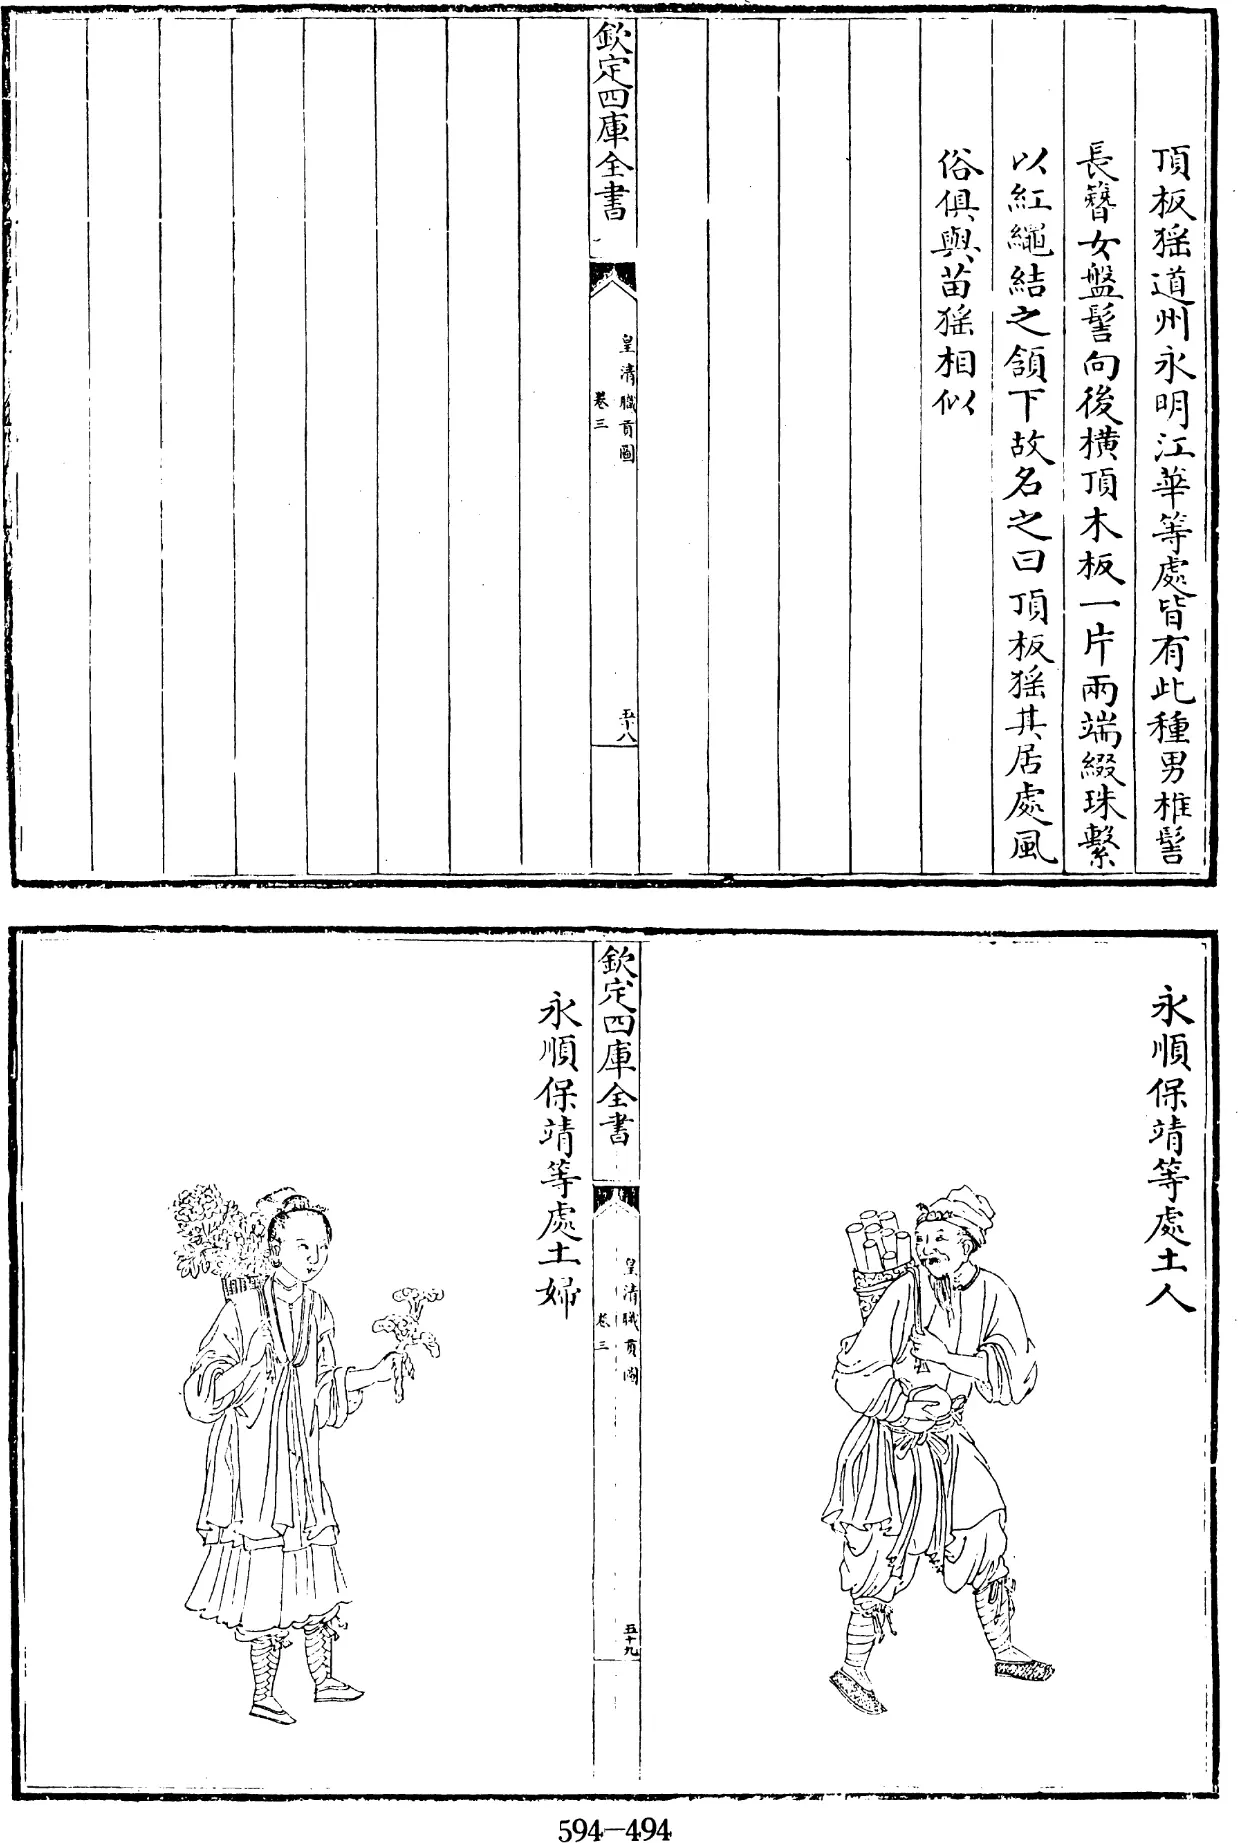 頂板猺道州永明江華等處皆有此種男椎髻
長簪女盤髻向後橫頂木板一片兩端綴珠繫
以紅繩結之頷下故名之曰頂板猺其居處風
俗俱與苗猺相似
欽定四庫全書
皇清職貢圖
卷三
五十八
永順保靖等處土人
欽定四庫全書
皇清職貢圖
卷三
五十九
永順保靖等處土婦
594—494